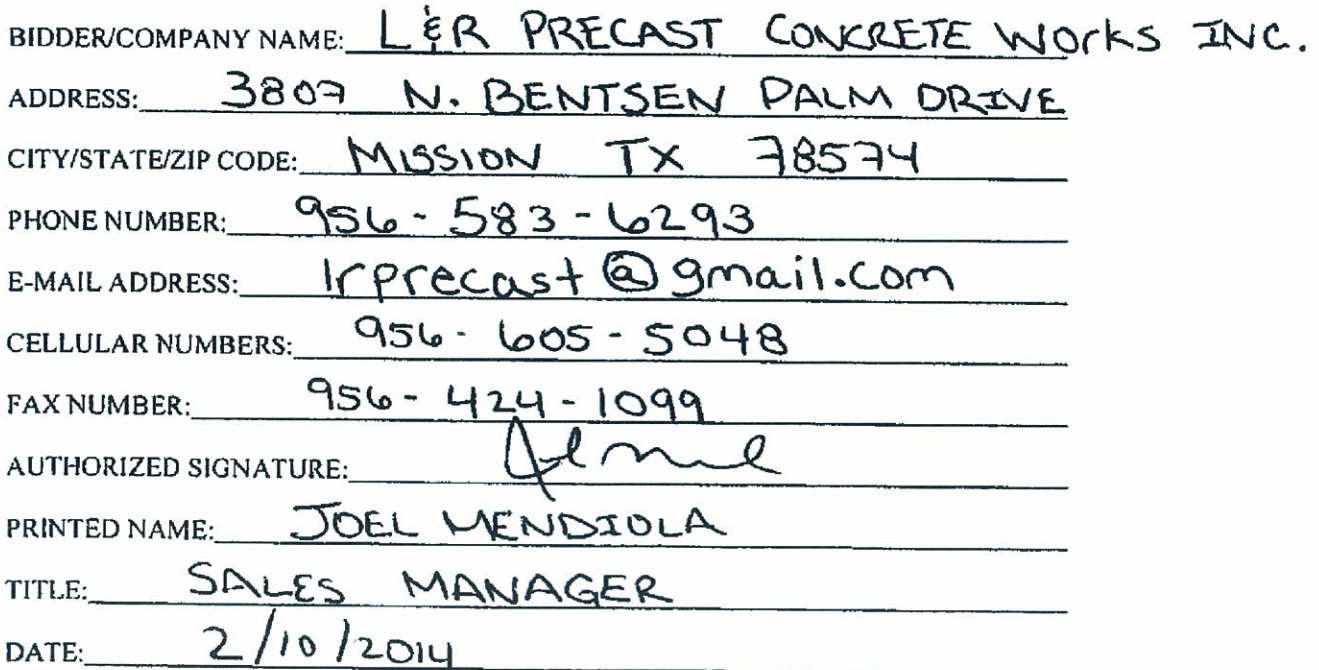 BIDDER/COMPANY NAME: L&R PRECAST CONCRETE WOrks INC.
ADDRESS: 3807 N. BENTSEN PALM DRIVE
CITY/STATE/ZIP CODE: MISSION TX 78574
PHONE NUMBER: 956-583-6293
E-MAIL ADDRESS: lrprecast@gmail.com
CELLULAR NUMBERS: 956-605-5048
FAX NUMBER: 956-424-1099
AUTHORIZED SIGNATURE:
PRINTED NAME: JOEL MENDIOLA
TITLE: SALES MANAGER
DATE: 2/10/2014